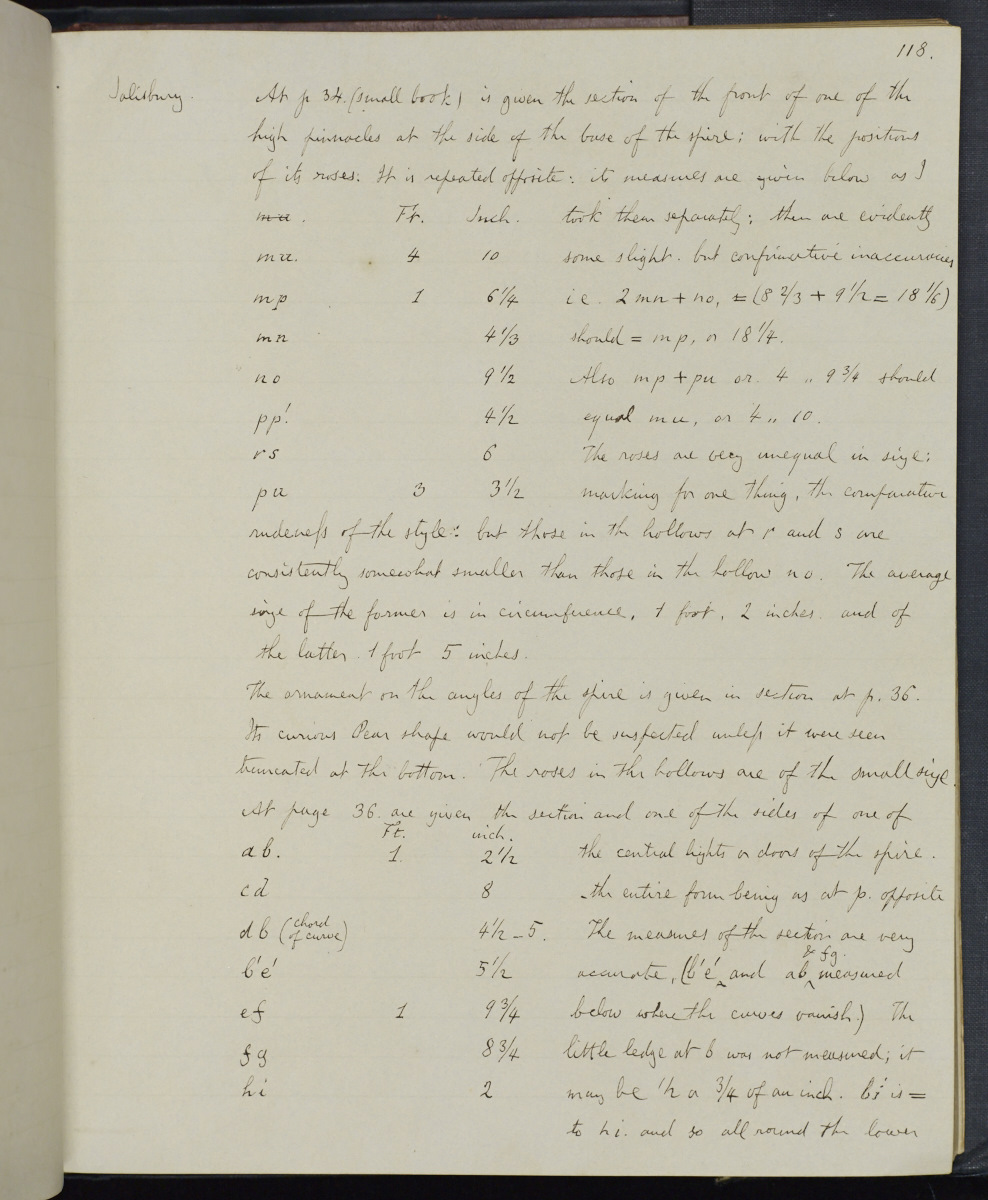 118.
Salisbury. At p 34. (small book) is given the section of the front of one of the
high pinnacles at the side of the base of the spire; with the positions
of its roses: It is repeated opposite: its measures are given below as I
mu. Ft. Inch. took them separately; there are evidently
mu. 4 10 some slight. but confirmative inaccuracies
mp 1 6 1/4 i.e. 2 mn + no, = (8 2/3 + 9 1/2 = 18 1/6)
mn 4 1/3 should = mp, or 18 1/4.
no 9 1/2 Also mp + pu or. 4 „ 9 3/4 should
pp'. 4 1/2 equal mu, or 4 „ 10.
rs 6 The roses are very unequal in size:
pu 3 3 1/2 marking for one thing, the comparative
rudeness of the style: but those in the hollows at r and s are
consistently somewhat smaller than those in the hollow no. The average
size of the former is in circumference, 1 foot, 2 inches. and of
the latter. 1 foot 5 inches.
The ornament on the angles of the spire is given in section at p. 36.
Its curious Pear shape would not be suspected unless it were seen
truncated at the bottom. The roses in the hollows are of the small size.
At page 36. are given the section and one of the sides of one of
Ft. inch.
ab. 1. 2 1/2 the central lights or doors of the spire.
cd 8 the entire form being as at p. opposite
db (chord of curve) 4 1/2 - 5. The measures of the section are very
b'e' 5 1/2 accurate, (b'e' and ab & fg. measured
ef 1 9 3/4 below where the curves vanish.) The
fg 8 3/4 little ledge at b was not measured; it
hi 2 may be 1/2 or 3/4 of an inch. b'i' is =
to hi. and so all round the lower